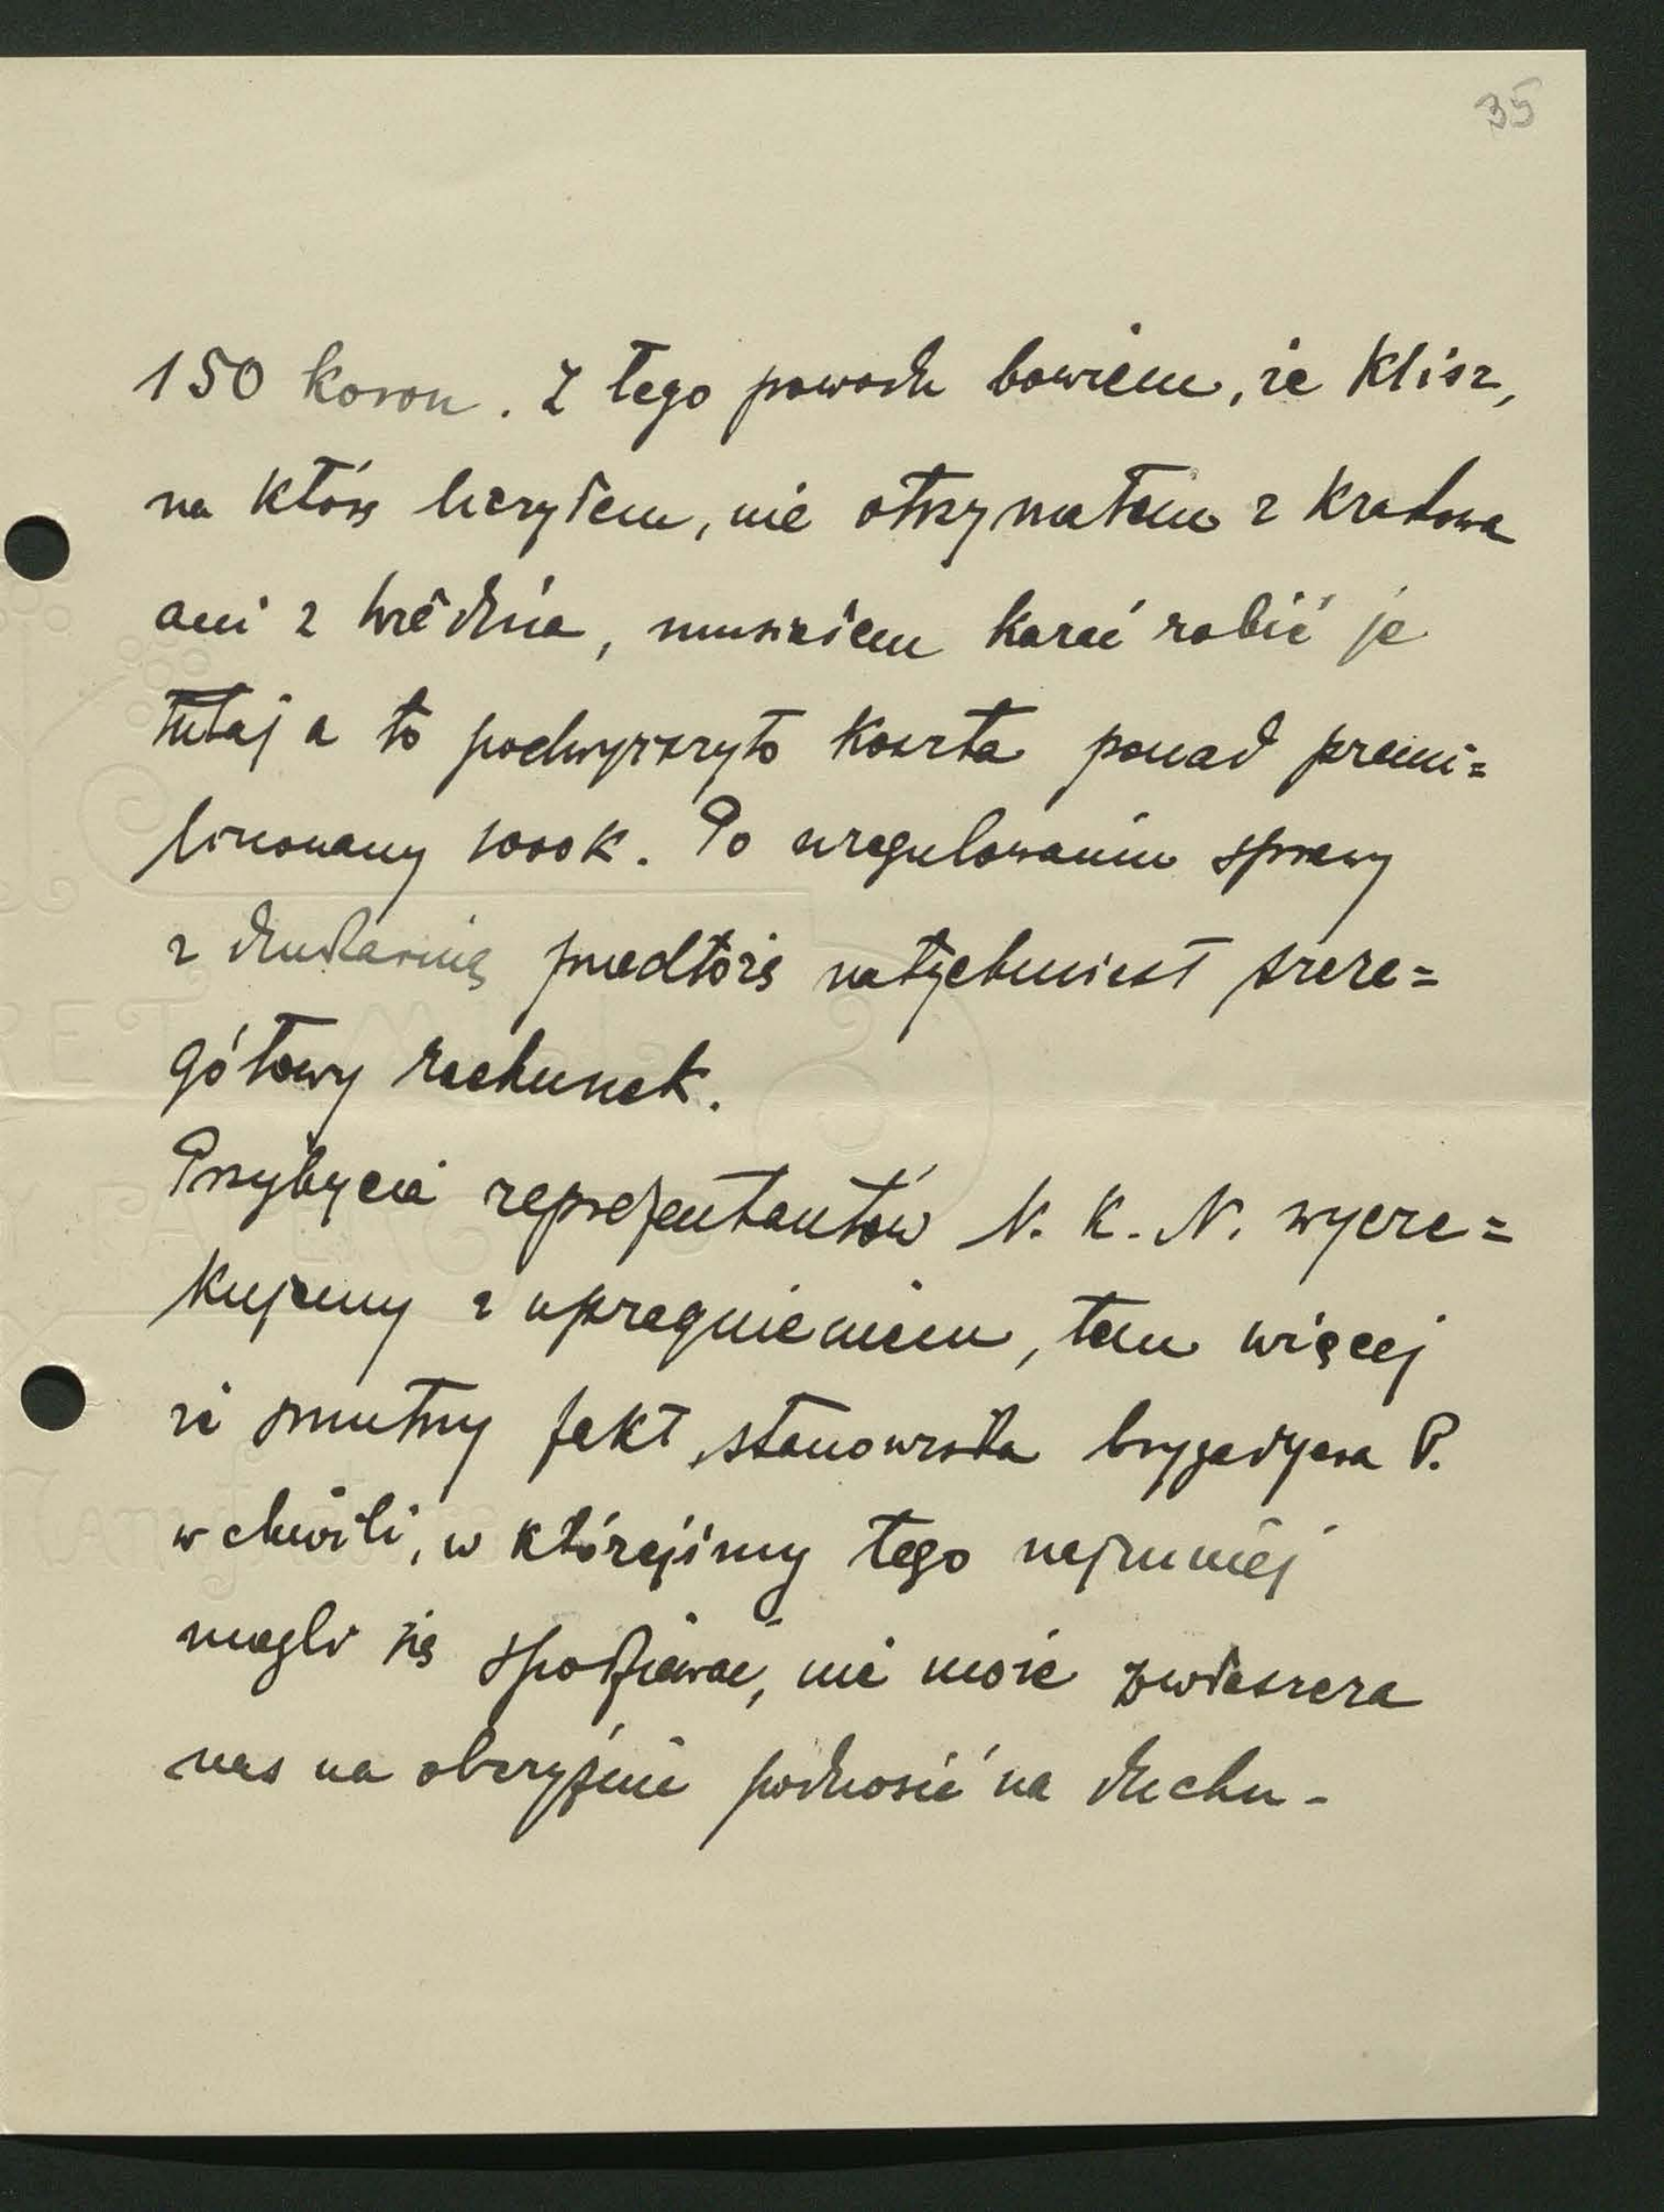 35
150 koron. Z tego powodu bowiem, że klisz,
na które liczyłem, nie otrzymałem z Krakowa
ani z Wiednia, musiałem kazać robić je
tutaj a to podwyższyło koszta ponad preli=
minowany 1000 K. Po uregulowaniu sprawy
z drukarnią przedłożę natychmiast szcze=
gółowy rachunek.
Przybycia reprezentantów N. K. N. wycze=
kujemy z upragnieniem, tem więcej
że smutny fakt stanowiska brygadyera P.
w chwili, w którejśmy tego najmniej
mogli się spodziewać, nie może zwłaszcza
nas na obczyźnie podnosić na duchu -